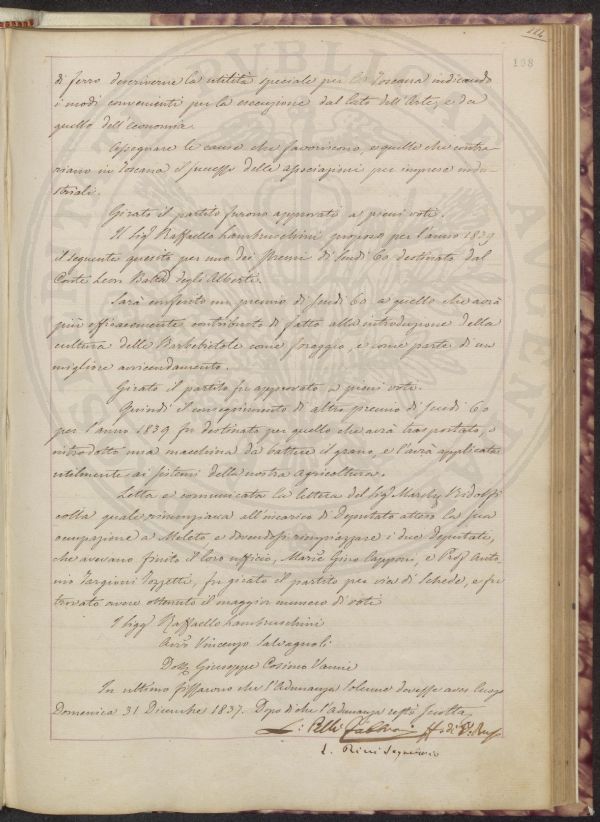 114
108
di ferro descriverne la utilità speciale per la Toscana indicando
i modi convenienti per la esecuzione dal lato dell'Arte, e da
quello dell'economia.
Assegnare le cause che favoriscono, e quelle che contra-
riano in Toscana il successo delle associazioni per imprese indu-
striali.
Girato il partito furono approvati a pieni voti.
Il Sigr Raffaello Lambruschini propose per l'anno 1839
il seguente quesito per uno dei Premi di Scudi 60 destinato dal
Conte Leon Batta degli Alberti.
Sarà conferito un premio di Scudi 60 a quello che avrà
più efficacemente contribuito di fatto alla introduzione della
cultura delle Barbebietole come foraggio, e come parte di un
migliore avvicendamento.
Girato il partito fu approvato a pieni voti.
Quindi il conseguimento di altro premio di Scudi 60
per l'anno 1839 fu destinato per quello che avrà trasportato, o
introdotto una macchina da battere il grano, e l'avrà applicata
utilmente ai sistemi della nostra Agricoltura.
Letta e comunicata la lettera del Sigr March. Ridolfi
colla quale rinunziava all'incarico di Deputato atteso la sua
ocupazione a Meleto e dovendosi rimpiazzare i due Deputati,
che avevano finito il loro ufficio, March. Gino Capponi, e Prof. Anto
nio Targioni Tozzetti, fu girato il partito per via di schede, e fu
trovato avere ottenuto il maggior numero di voti
I Sigg. Raffaello Lambruschini
Avv. Vincenzo Salvagnoli
Dott. Giuseppe Cosimo Vanni
In ultimo fissarono che l'Adunanza solenne dovesse aver luogo
Domenica 31 Dicembre 1837. Dopo di che l'Adunanza restò sciolta.
L: Pelli Fabbroni
L. Rini Segretario